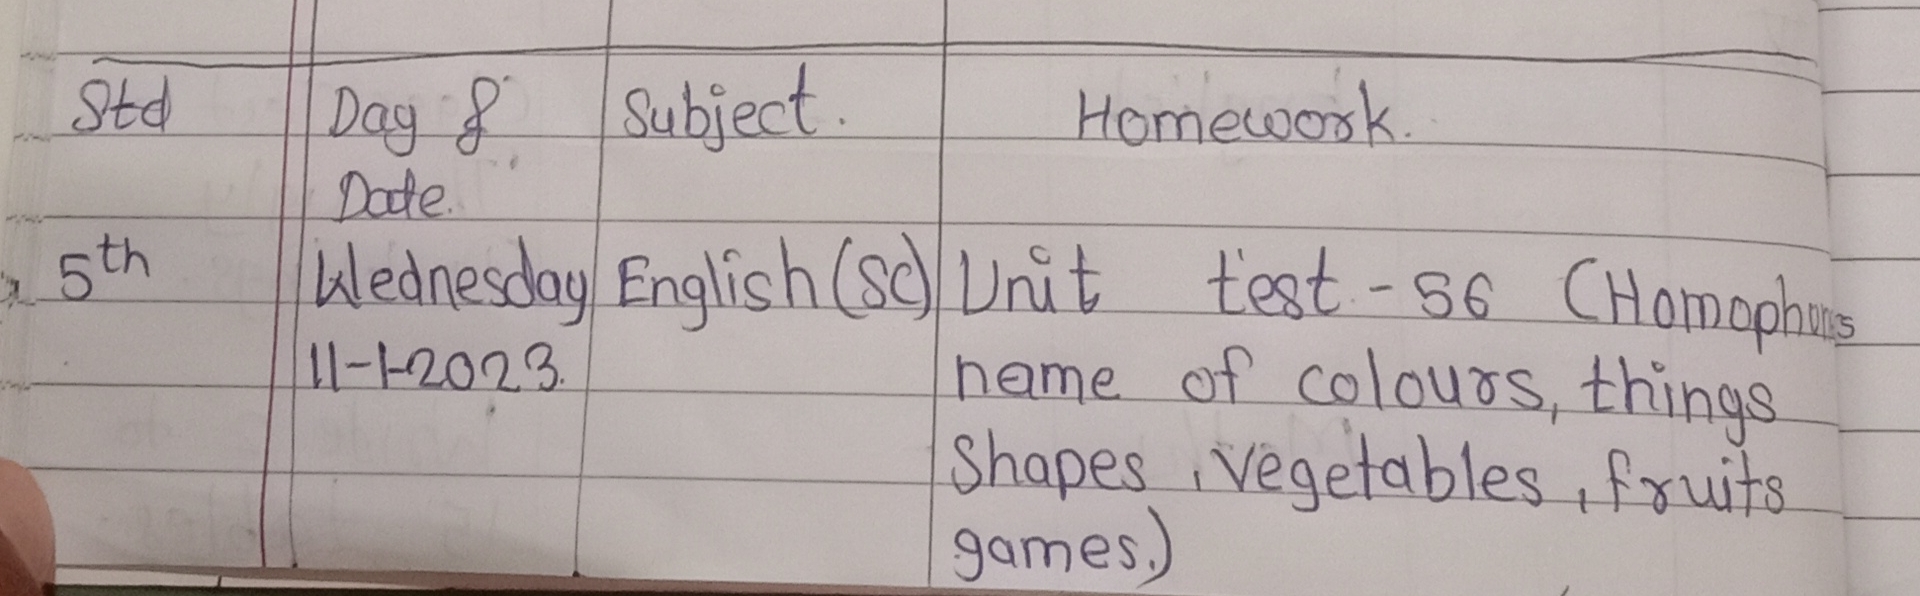 Std Day & Subject. Homework.
Date.
5th Wednesday English (SC) Unit test - 56 (Homophons
11-1-2023. name of colours, things
Shapes, vegetables, fruits
games.)